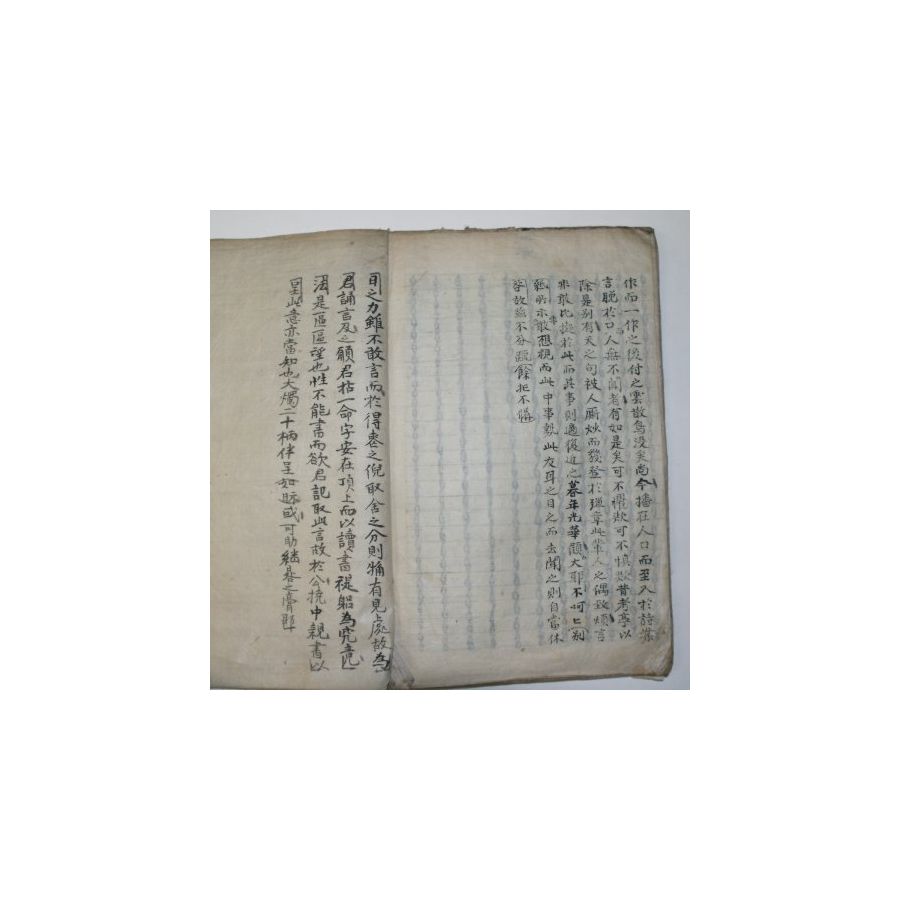 作而一作之後付之雲散鳥没矣尚今播在人口而至入於詩
言脱於口人無不聞者有如是矣可不懼歟可不慎歟昔考亭以
除是別有天之句被人厮炒而發登於章此軰人之偶致煩言
非敢比擬於此而其事則過後近之暮年光華顧大耶不呵ヒ別
紙亦敢視而此中事此友耳之目之而去聞之則自當休
故不分餘拒不
目之力雖不敢言而於得之倪取舎之分則猶有見處故為
君誦言及之願君拈一命字安在頂上而以讀書褆躬為究竟
法是區區望也性不能書而欲君記取此言故於公挠中親書以
呈此意亦當知也大燭二十柄伴呈如或可助繼晷之膏耶